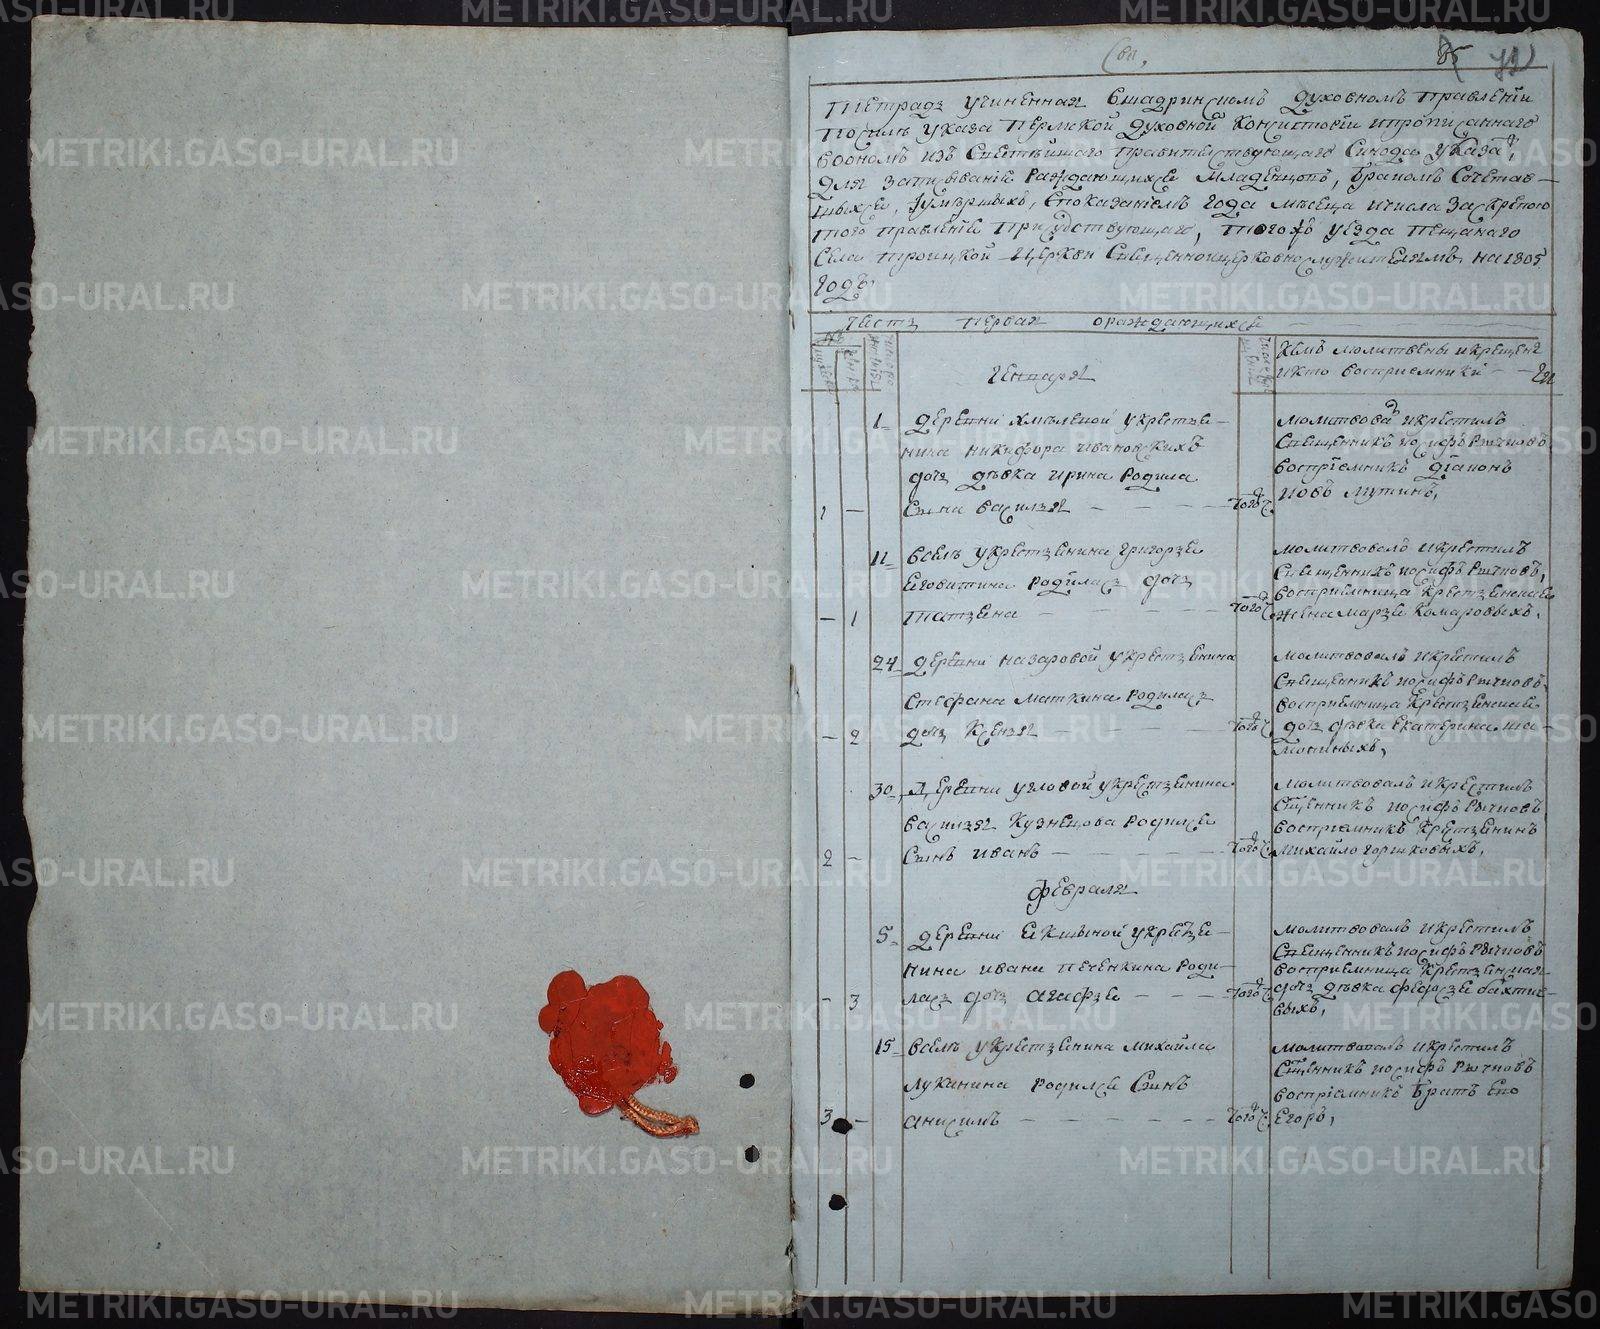 85
Тетрадь учиненная вшадринскомъ духовномъ правленіи
посилѣ указа пермской духовной консисторіи ипрописаннаго
воономъ изъ Святѣйшаго правительствующаго Синода указа,
для записыванія раждающихся младенцовъ, бракомъ Сочетав-
шихся, іумершихъ, споказаніемъ года мѣсеца ичисла заскрепою
того правленія присудствующаго, тогожъ уезда пещанаго
Села троицкой церкви Священноицерковнослужителямъ на 1805
годъ,
Часть первая ораждающихся
Генваря
Кемъ молитвены икрещены
икто восприемники
1 деревни хмѣлевой укрестья-
нина никифора иванокихъ
дочь дѣвка ирина родила
1 — Сына василья — — — того ч.
молитвовал икрестилъ
Священникъ иосифъ Рычковъ
восприемникъ діаконъ
иовъ мутинъ,
11 вселѣ укрестьянина григорья
Еговитина родилась дочь
— 1 татьяна — — — того ч.
молитвовалъ икрестилъ
Священникъ иосифъ Рычковъ,
восприемница крестьянская
жена марья комаровыхъ,
24 деревни назаровой укрестьянина
Стефана маткина родилась
— 2 дочь Ксенья — — — того ч.
молитвовалъ икрестилъ
Священикъ иосифъ Рычковъ
восприемница крестьянская
дочь дѣвка екатерина ша-
мониныхъ,
30 деревни угловой укрестьянина
василья кузнецова родился
2 — Сынъ иванъ — — — того ч.
молитвовалъ икрестилъ
Сщенникъ иосифъ Рычковъ
восприемникъ Крестьянинъ
михайло горшковыхъ,
февраля
5 деревни екшиной укресья-
нина ивана печенкина роди-
— 3 лась дочь агафья — — — того ч.
молитвовалъ икрестилъ
Священникъ иосифъ Рычковъ
восприемница крестьянская
дочь дѣвка федосья бахтие-
выхъ,
15 вселѣ укрестьянина михайла
лукинина родился Сынъ
3 — анисимъ — — — того ч.
молитвовалъ икрестилъ
Сщенникъ иосифъ Рычковъ
восприемникъ братъ его
Егоръ,
METRIKI.GASO-URAL.RU